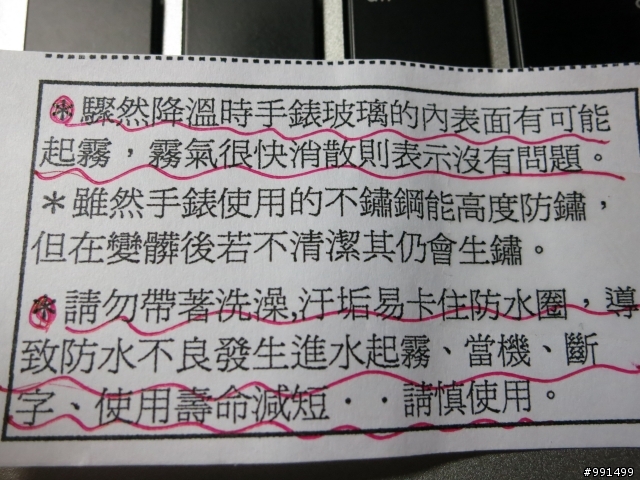 ＊驟然降溫時手錶玻璃的內表面有可能
起霧，霧氣很快消散則表示沒有問題。
＊雖然手錶使用的不鏽鋼能高度防鏽，
但在變髒後若不清潔其仍會生鏽。
＊請勿帶著洗澡,汙垢易卡住防水圈，導
致防水不良發生進水起霧、當機、斷
字、使用壽命減短‧‧請慎使用。
#991499